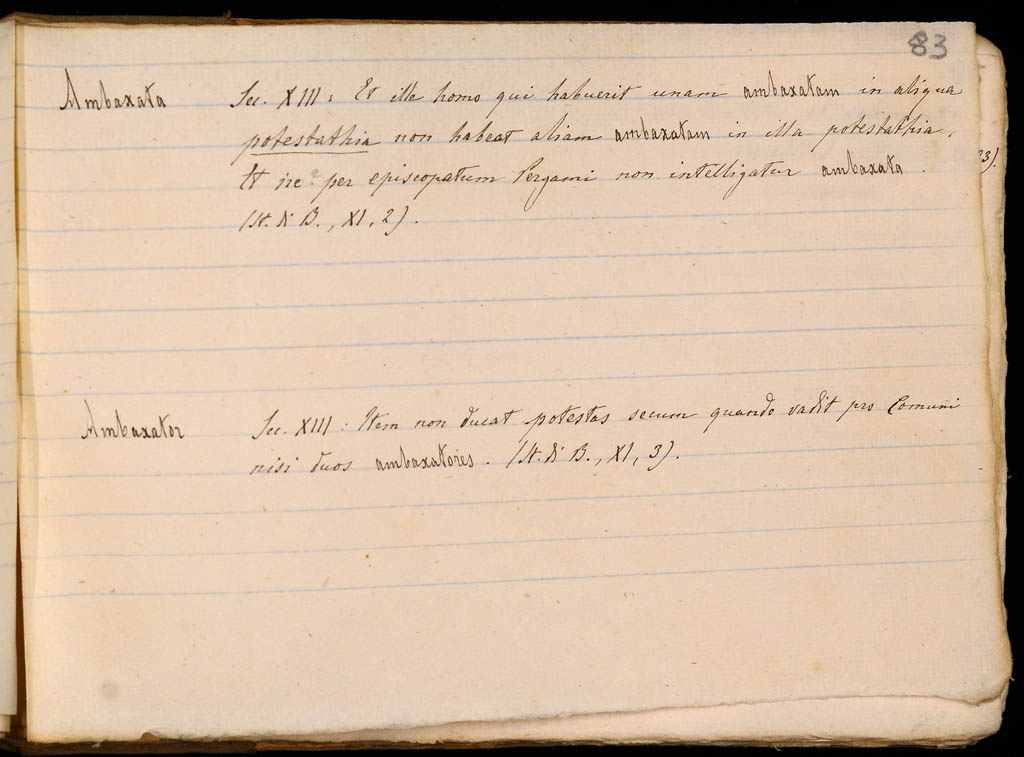 83
Ambaxata Sec. XIII: Et ille homo qui habuerit unam ambaxatam in aliqua
potestathia non habeat aliam ambaxatam in illa potestathia.
Et ire per episcopatum Pergami non intelligatur ambaxata.
(St. di B., XI, 2).
23).
Ambaxator Sec. XIII: Item non ducat potestas secum quando vadit pro Comuni
nisi duos ambaxatores. (St. di B., XI, 3).